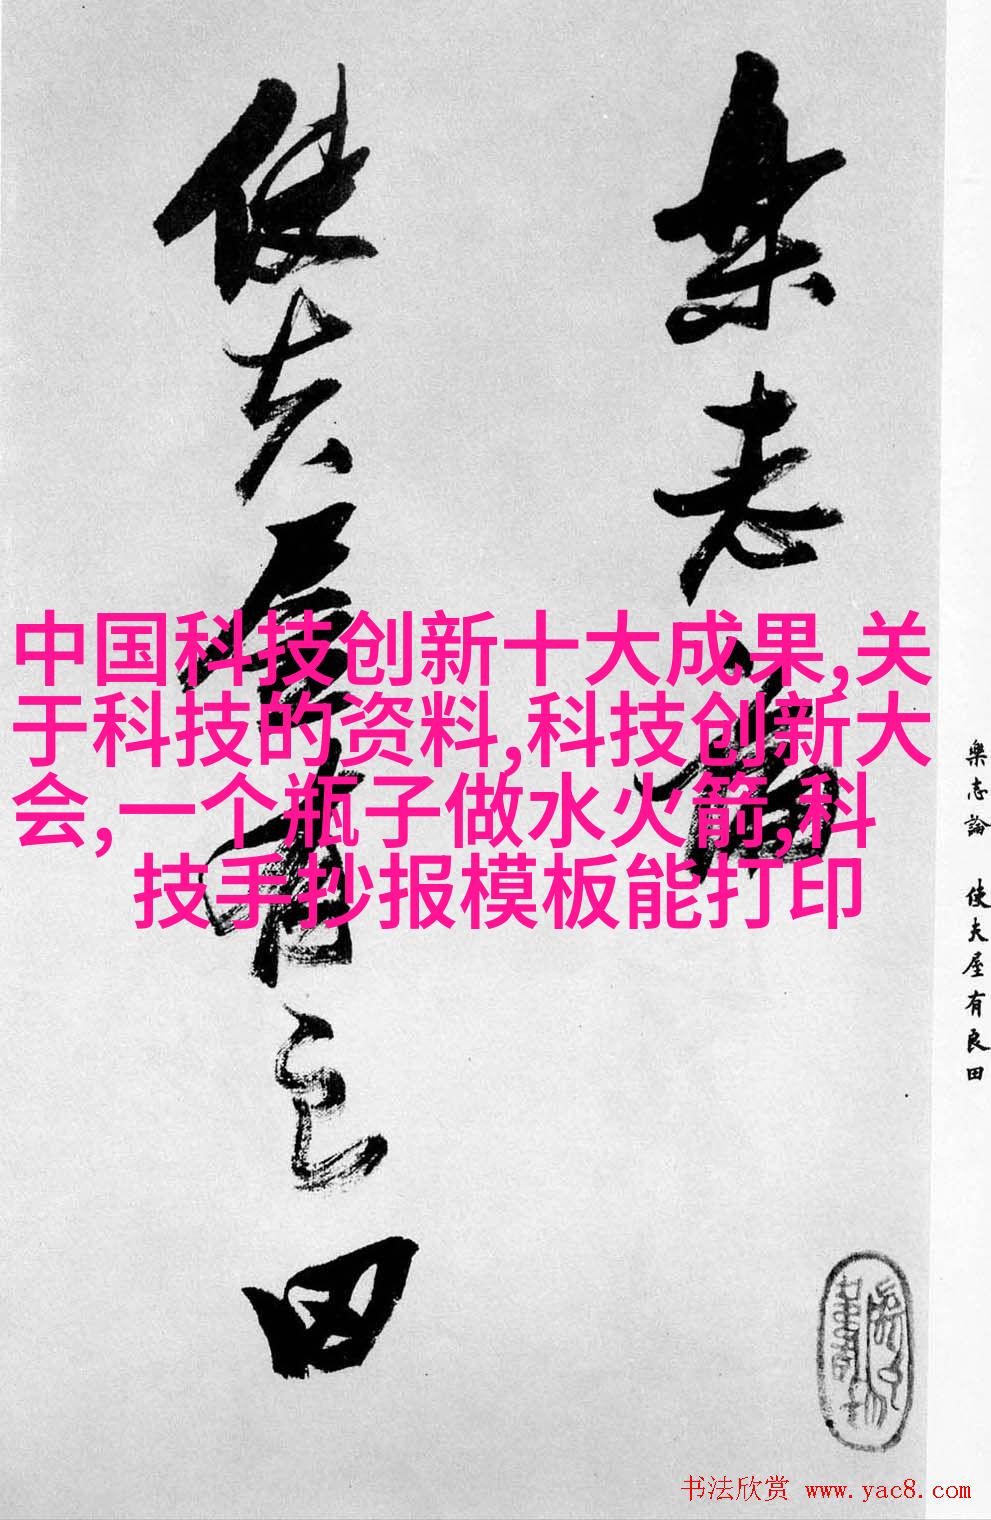 樂志論
使夫屋有良田
中国科技创新十大成果,关
于科技的资料,科技创新大
会,一个瓶子做水火箭,科
技手抄报模板能打印
樂志論 使夫屋有良田
书法欣赏 www.yac8.com